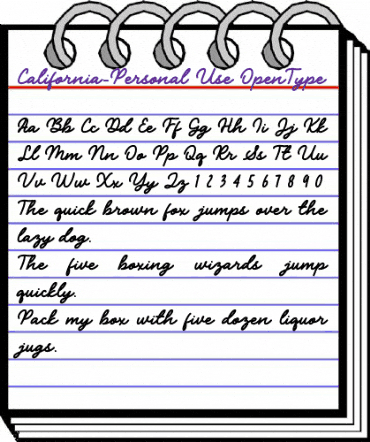 California-Personal Use OpenType
Aa Bb Cc Dd Ee Ff Gg Hh Ii Jj Kk
Ll Mm Nn Oo Pp Qq Rr Ss Tt Uu
Vv Ww Xx Yy Zz 1 2 3 4 5 6 7 8 9 0
The quick brown fox jumps over the
lazy dog.
The five boxing wizards jump
quickly.
Pack my box with five dozen liquor
jugs.